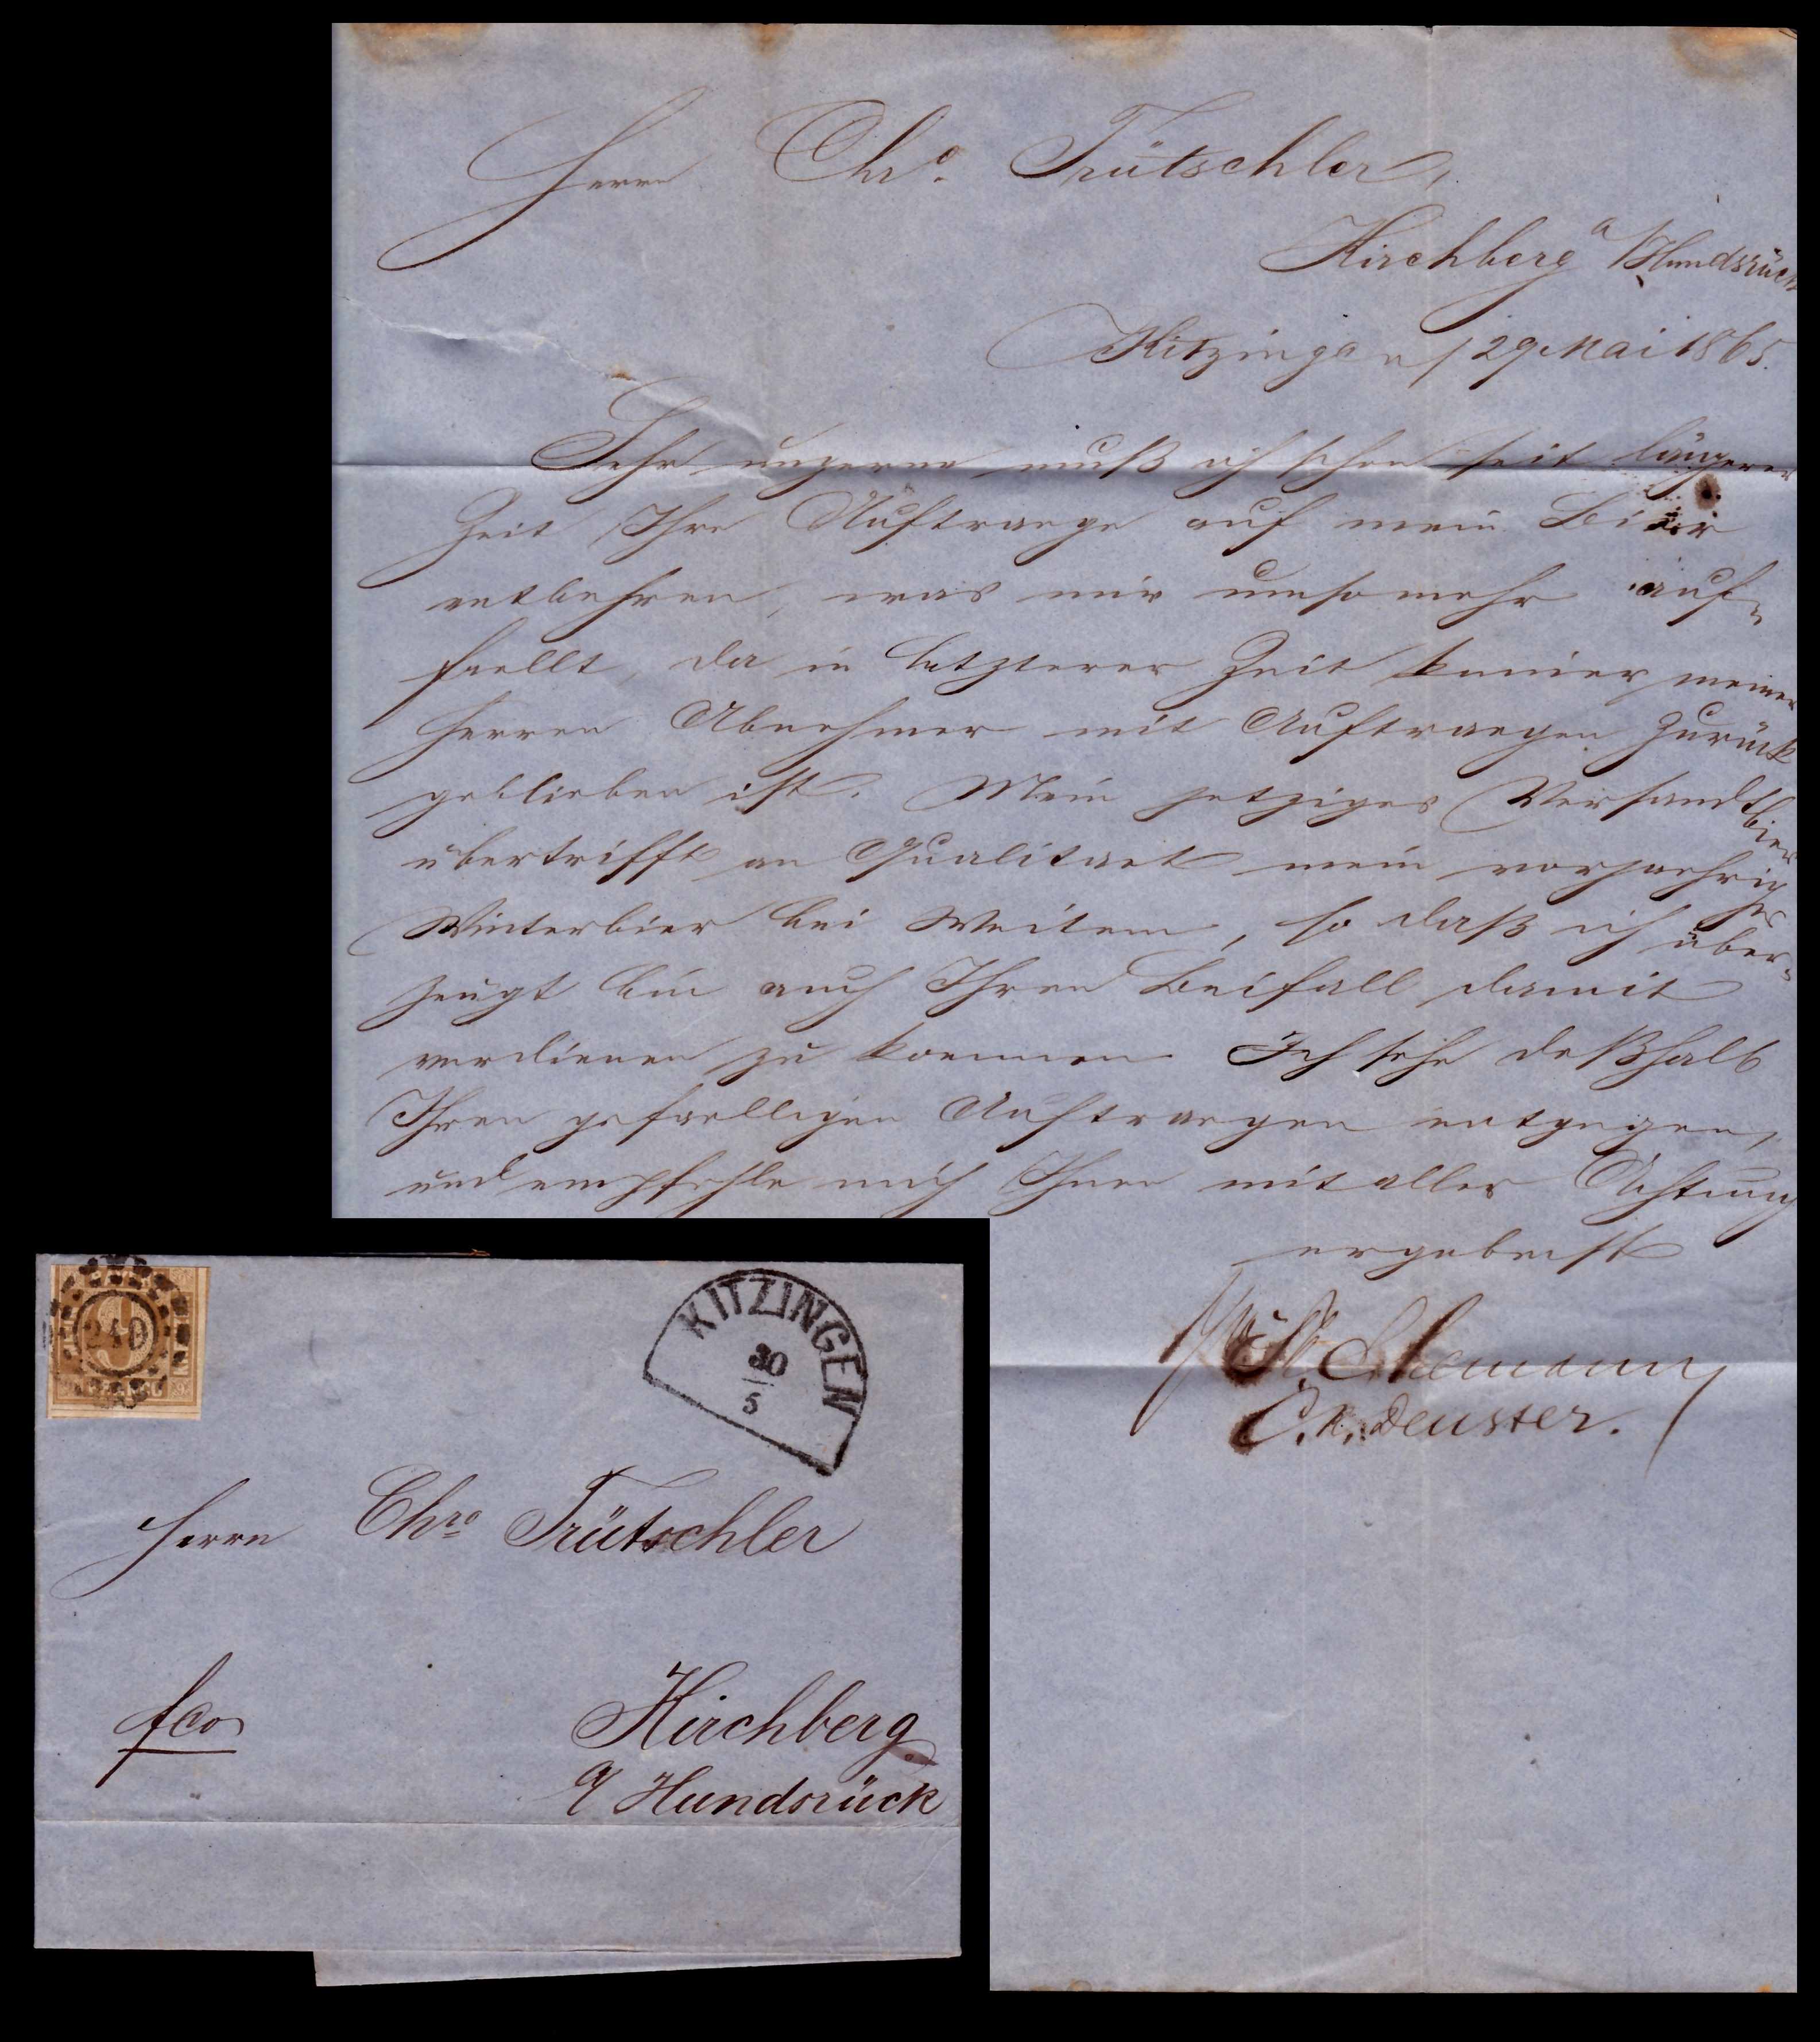 Herrn Chro. Trütschler,
Kirchberg a/Hundsrück
Kitzingen / 29 Mai 1865.
Sehr ungerne muß ich schon seit längerer
Zeit Ihre Auftraege auf mein Bier
entbehren, was mir umsomehr auf-
faellt, da in letzterer Zeit keiner meiner
Herren Abnehmer mit Auftraegen zurück
geblieben ist. Mein jetziges Versandtbier
übertrifft an Qualitaet mein vorjaehriges
Winterbier bei Weitem, so daß ich über-
zeugt bin auch Ihren Beifall damit
verdienen zu koennen. Ich sehe deßhalb
Ihren gefaelligen Auftraegen entgegen,
und empfehle mich Ihnen mit aller Achtung
ergebenst
C. Deuster.
KITZINGEN
30
5
240
Herrn Chro Trütschler
fco
Kirchberg
a/ Hundsrück